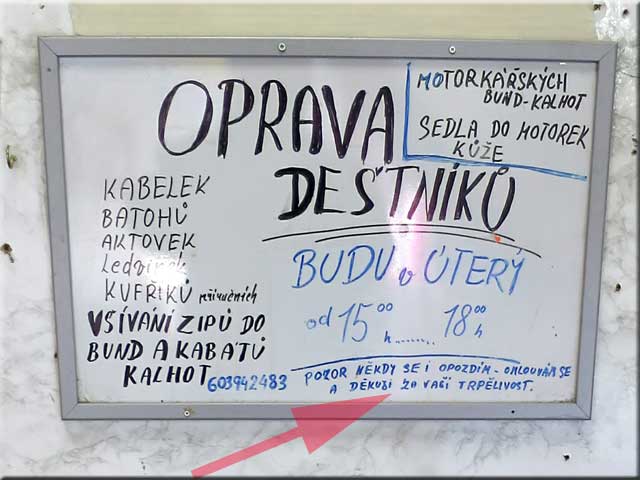 OPRAVA
DEŠTNÍKŮ
MOTORKÁŘSKÝCH
BUND-KALHOT
SEDLA DO MOTOREK
KŮŽE
KABELEK
BATOHŮ
AKTOVEK
Ledvinek
KUFŘÍKŮ příručních
VŠÍVÁNÍ ZIPŮ DO
BUND A KABÁTŮ
KALHOT
603942483
BUDU v ÚTERÝ
od 15 00 h........ 18 00 h
POZOR NĚKDY SE I OPOZDÍM - OMLOUVÁM SE
A DĚKUJI ZA VAŠÍ TRPĚLIVOST.